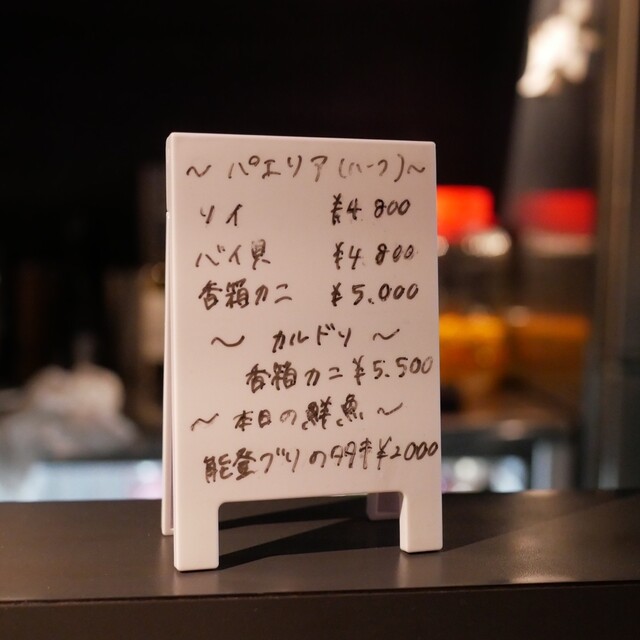 ～ パエリア(ハーフ)～
ソイ ¥4.800
バイ貝 ¥4.800
香箱カニ ¥5.000
～ カルドソ ～
香箱カニ ¥5.500
～ 本日の鮮魚 ～
能登ブリのタタキ ¥2000